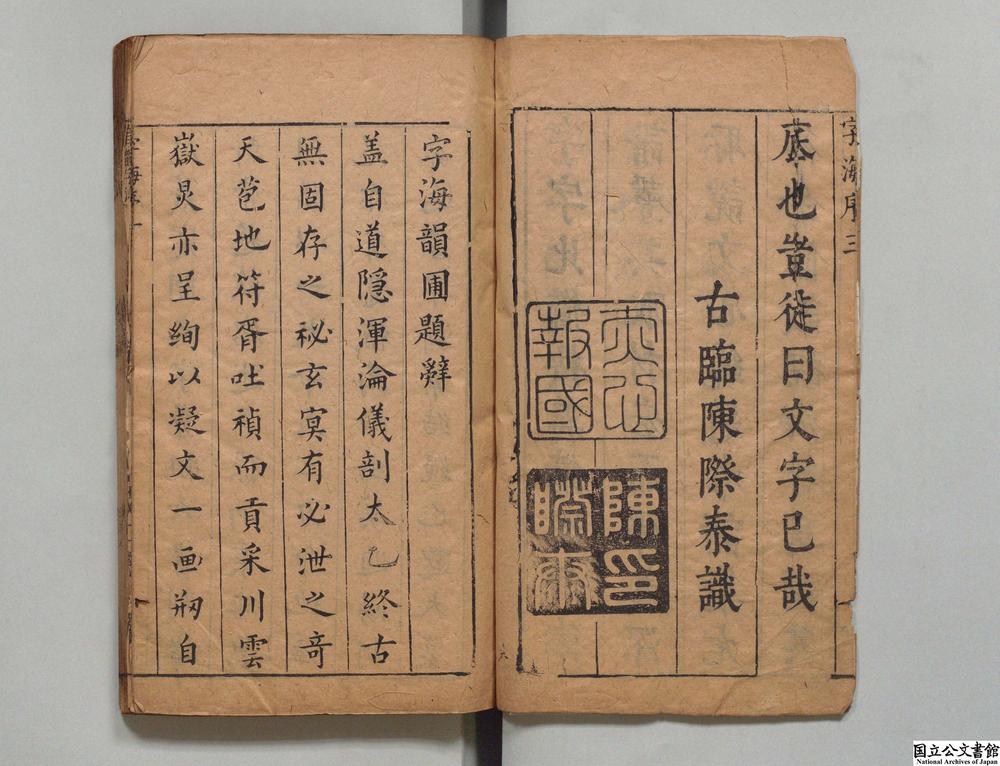 字海序 三
底也豈徒曰文字已哉
古臨陳際泰識
赤心報國
陳印際泰
字海韻圃題辭
盖自道隱渾淪儀剖太乙終古
無固存之祕玄冥有必泄之奇
天苞地符胥吐禎而貢采川雲
嶽炅亦呈絢以凝文一画刱自
国立公文書館
National Archives of Japan